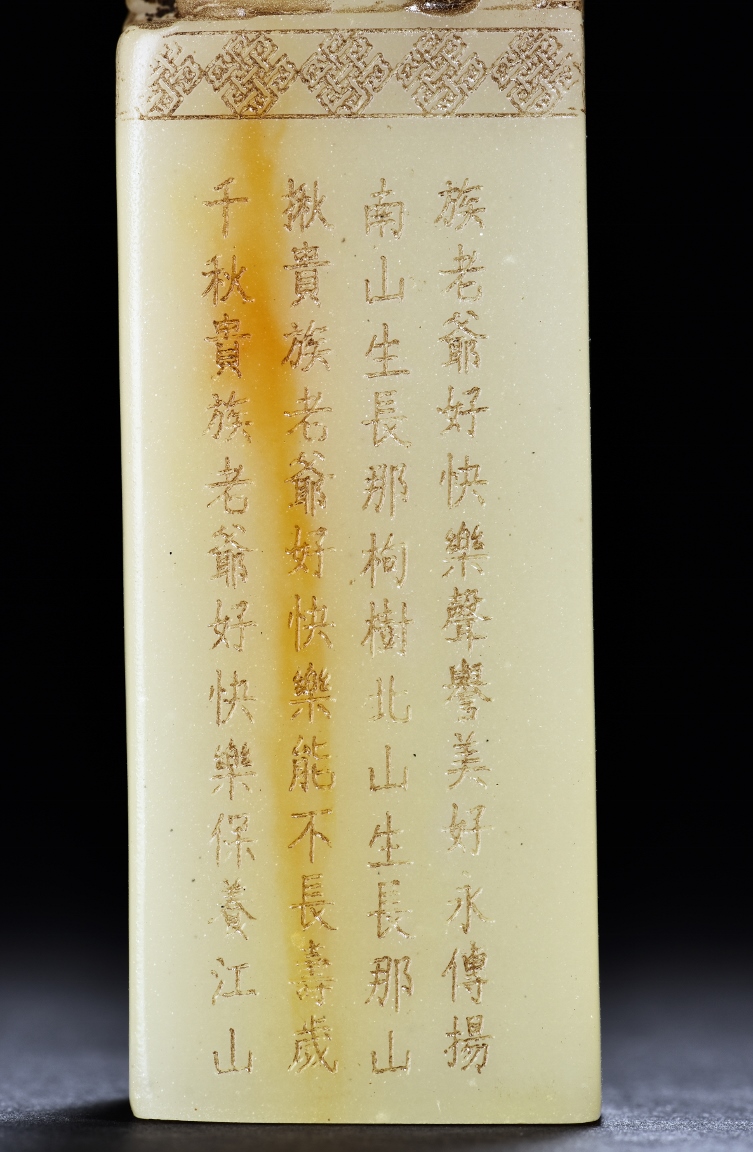 族老爺好快樂聲譽美好永傳揚
南山生長那枸樹北山生長那山
揪貴族老爺好快樂能不長壽歲
千秋貴族老爺好快樂保養江山